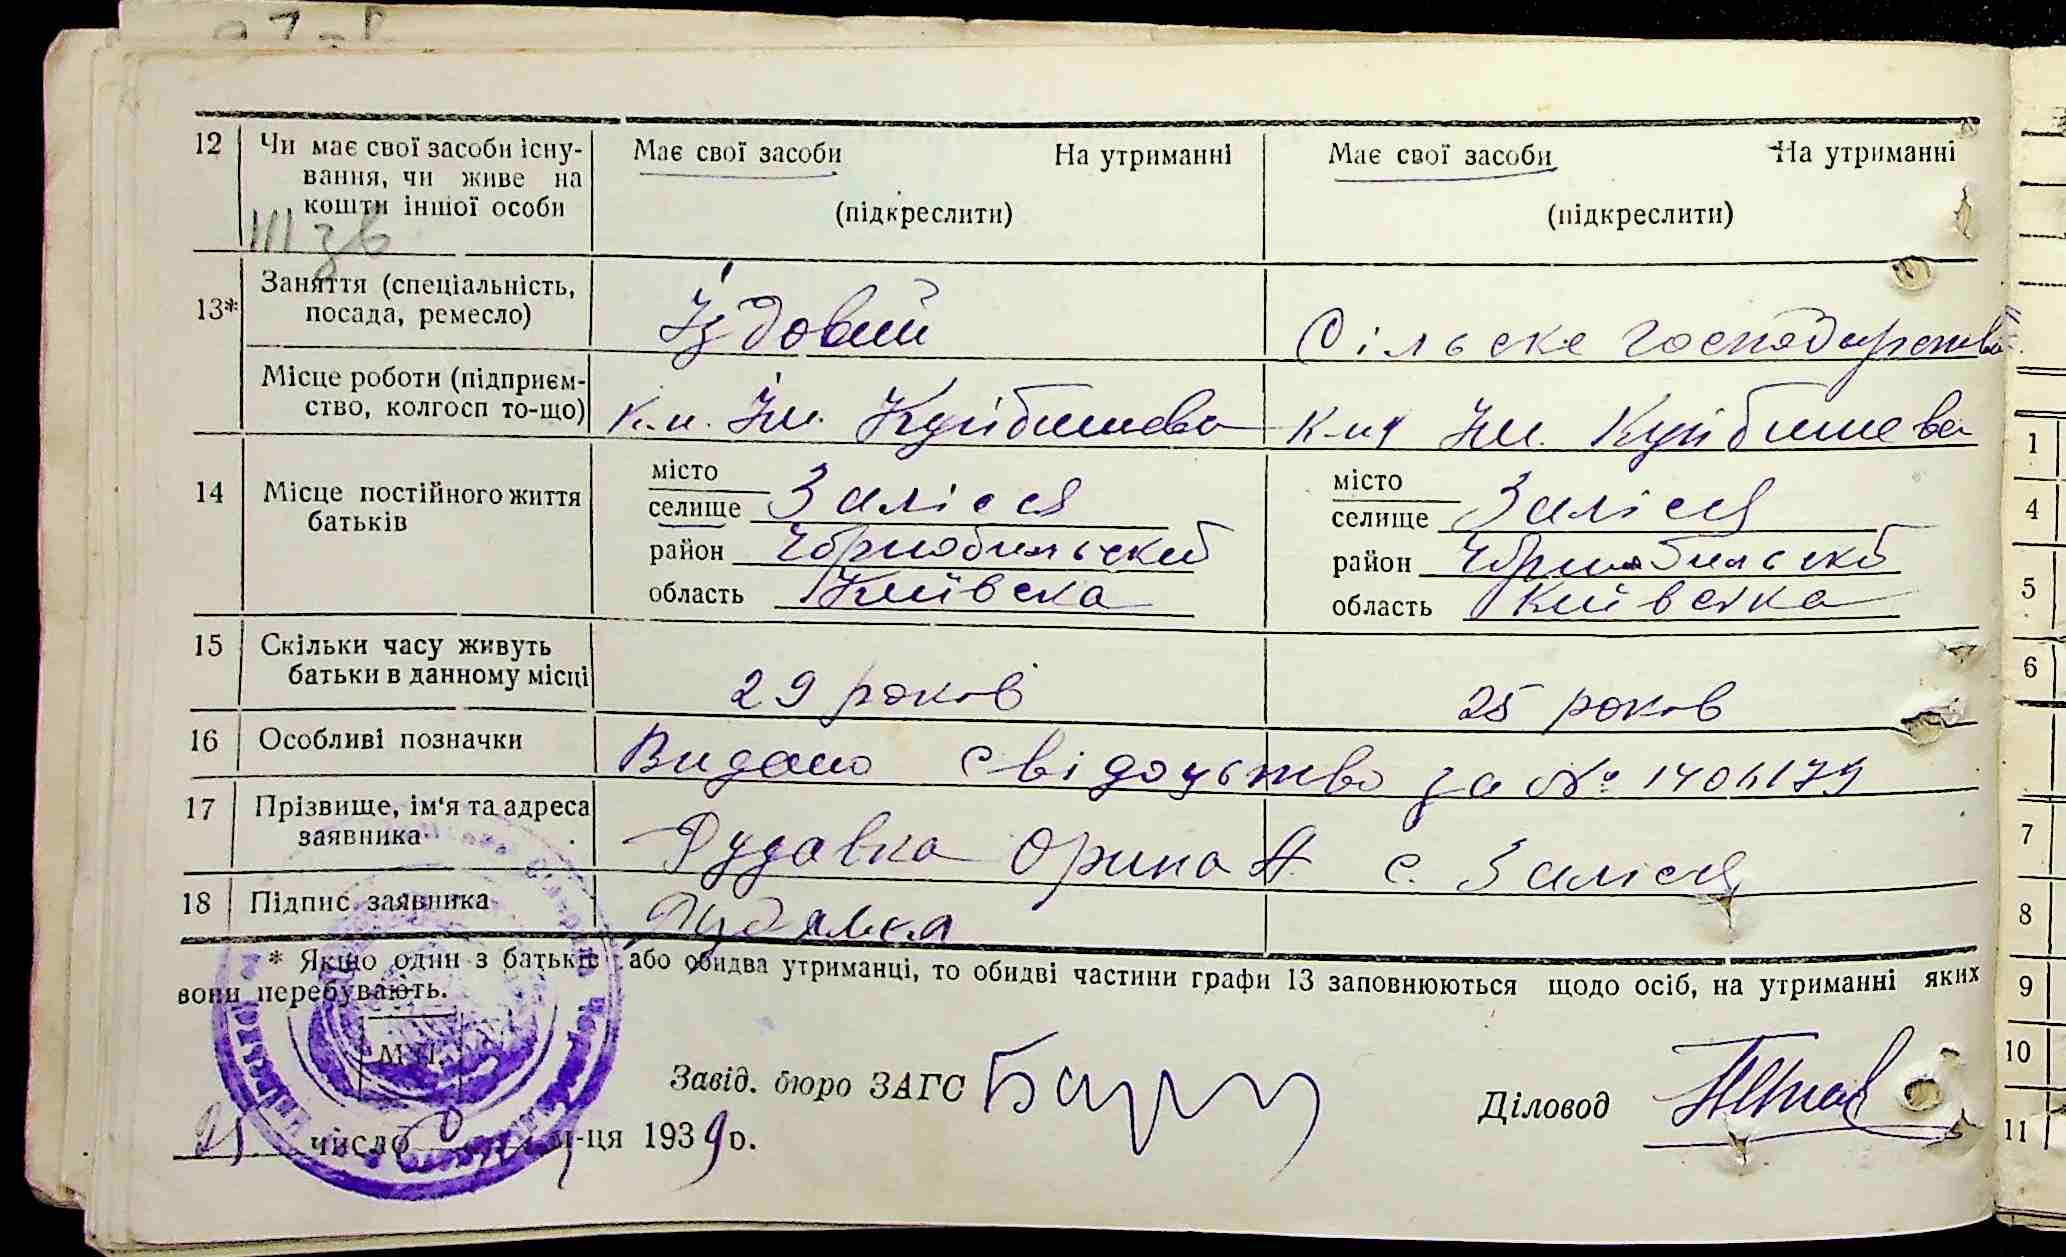 12 Чи має свої засоби існу- Має свої засоби На утриманні Має свої засоби На утриманні
вання, чи живе на
кошти іншої особи (підкреслити) (підкреслити)
III зв
13* Заняття (спеціальність, Їздовий Сільске господарство
посада, ремесло)
Місце роботи (підприєм- К-п. Ім. Куйбишева К-п Ім. Куйбишева
ство, колгосп то-що)
14 Місце постійного життя місто Залісся місто Залісся
батьків селище селище
район Чорнобильский район Чорнобильский
область Київска область Київска
15 Скільки часу живуть 29 років 25 років
батьки в данному місці
16 Особливі позначки Видано свідоцьтво за №
17 Прізвище, ім'я та адреса Рудавка Орина А. с. Залісся
заявника
18 Підпис заявника Рудавка
* Якщо один з батьків або обидва утриманці, то обидві частини графи 13 заповнюються щодо осіб, на утриманні яких
вони перебувають.
М.П.
Завід. бюро ЗАГС Діловод
число м-ця 1939 р.
1
4
5
6
7
8
9
10
11